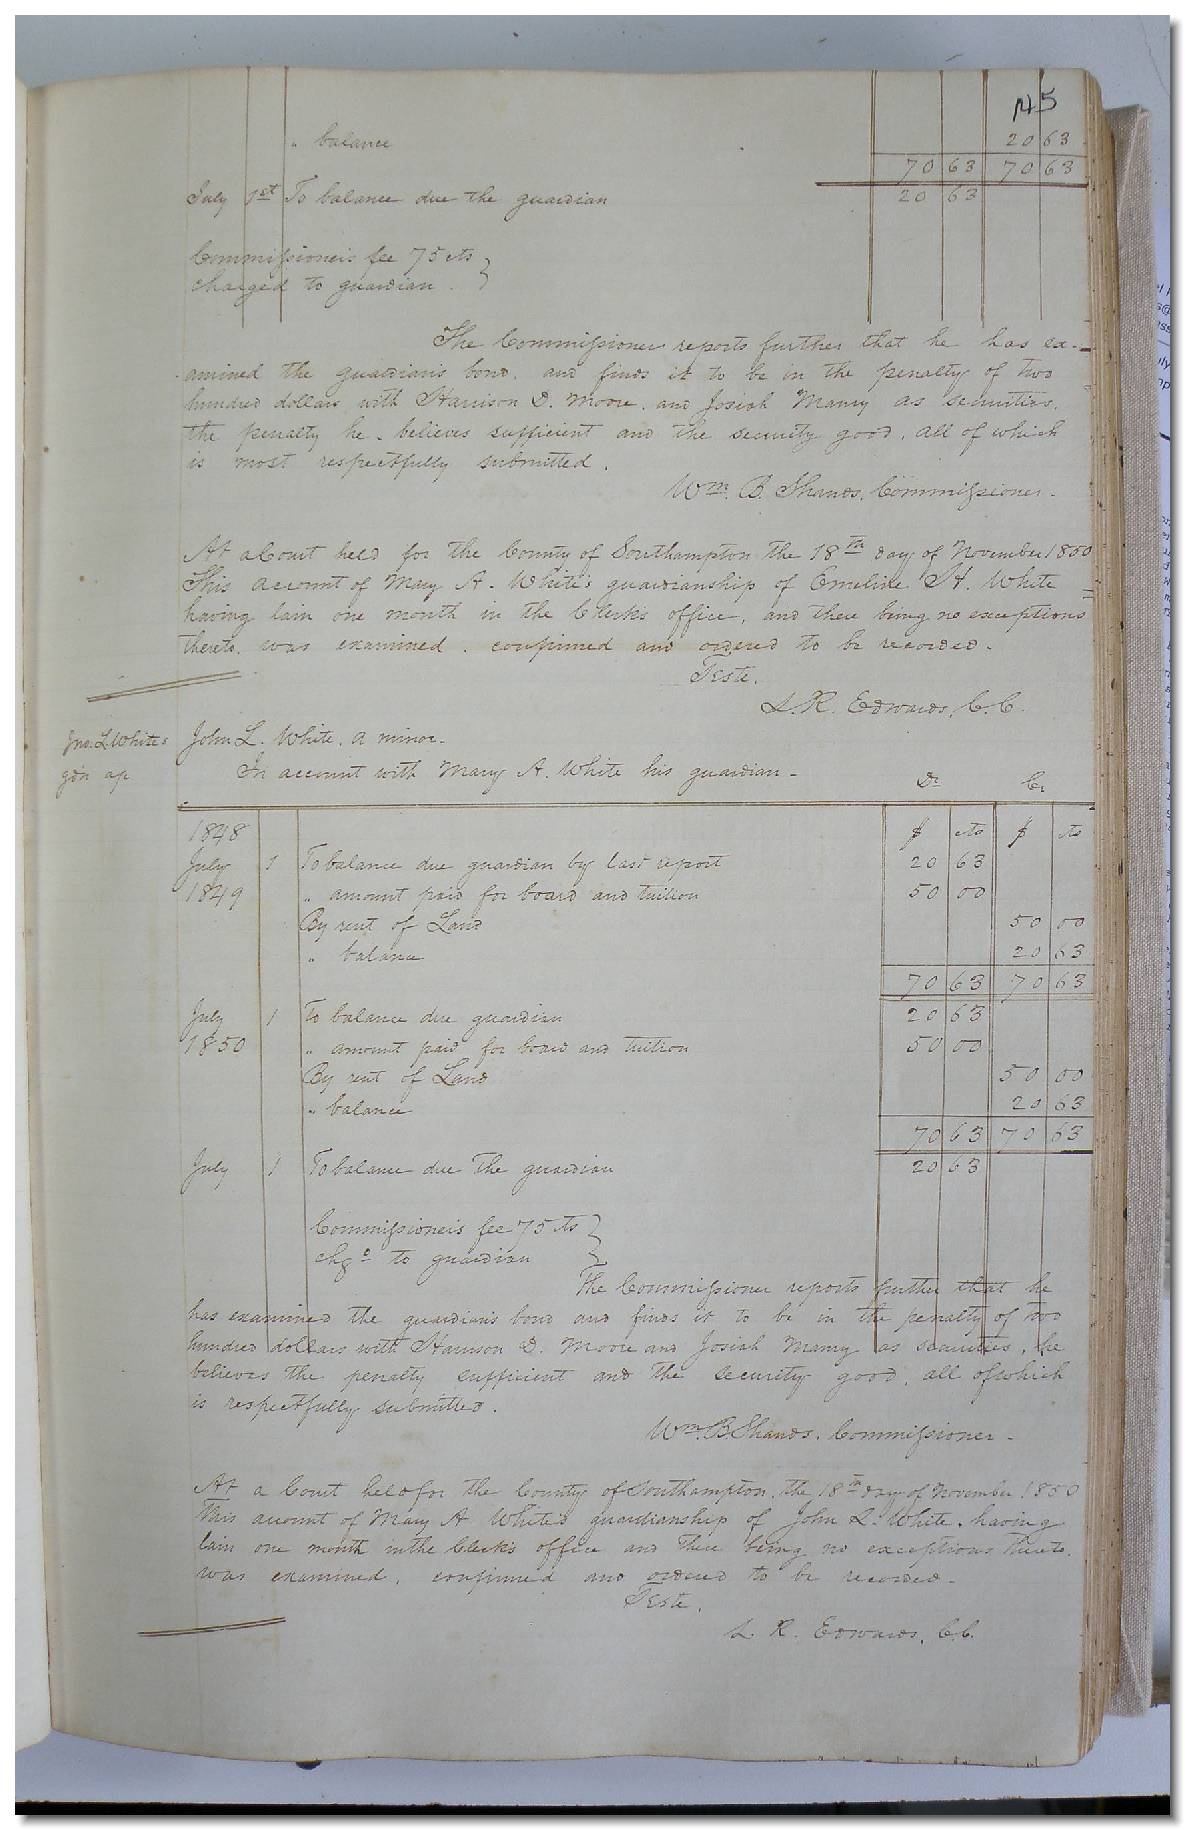 145
" balance 20 63
70 63 70 63
July 1st To balance due the guardian 20 63
Commissioners fee 75 cts
charged to guardian.
The Commissioner reports further that he has ex-
amined the guardians bond, and finds it to be in the penalty of two
hundred dollars with Harrison D. Moore, and Josiah Manry as securities,
the penalty he believes sufficient and the security good, all of which
is most respectfully submitted.
Wm. B. Shands, Commissioner.
At a Court held for the County of Southampton the 18th day of November 1850
This account of Mary A. White's guardianship of Emeline H. White
having lain one month in the Clerks office, and there being no exceptions
thereto, was examined, confirmed and ordered to be recorded.
Teste,
L. R. Edwards, C. C.
Jno. L. White's
gdn a/c
John L. White, a minor.
In account with Mary A. White his guardian - Dr Cr
1848 $ cts $ cts
July 1 To balance due guardian by last report 20 63
1849 " amount paid for board and tuition 50 00
By rent of Land 50 00
" balance 20 63
70 63 70 63
July 1 To balance due guardian 20 63
1850 " amount paid for board and tuition 50 00
By rent of Land 50 00
" balance 20 63
70 63 70 63
July 1 To balance due the guardian 20 63
Commissioners fee 75 cts
chgd to guardian
The Commissioner reports further that he
has examined the guardians bond and finds it to be in the penalty of two
hundred dollars with Harrison D. Moore and Josiah Manry as securities, he
believes the penalty sufficient and the security good, all of which
is respectfully submitted.
Wm. B Shands. Commissioner -
At a Court held for the County of Southampton, the 18th day of November 1850
This account of Mary A White's guardianship of John L. White, having
lain one month in the Clerks office and there being no exceptions thereto,
was examined, confirmed and ordered to be recorded -
Teste,
L. R. Edwards, C. C.